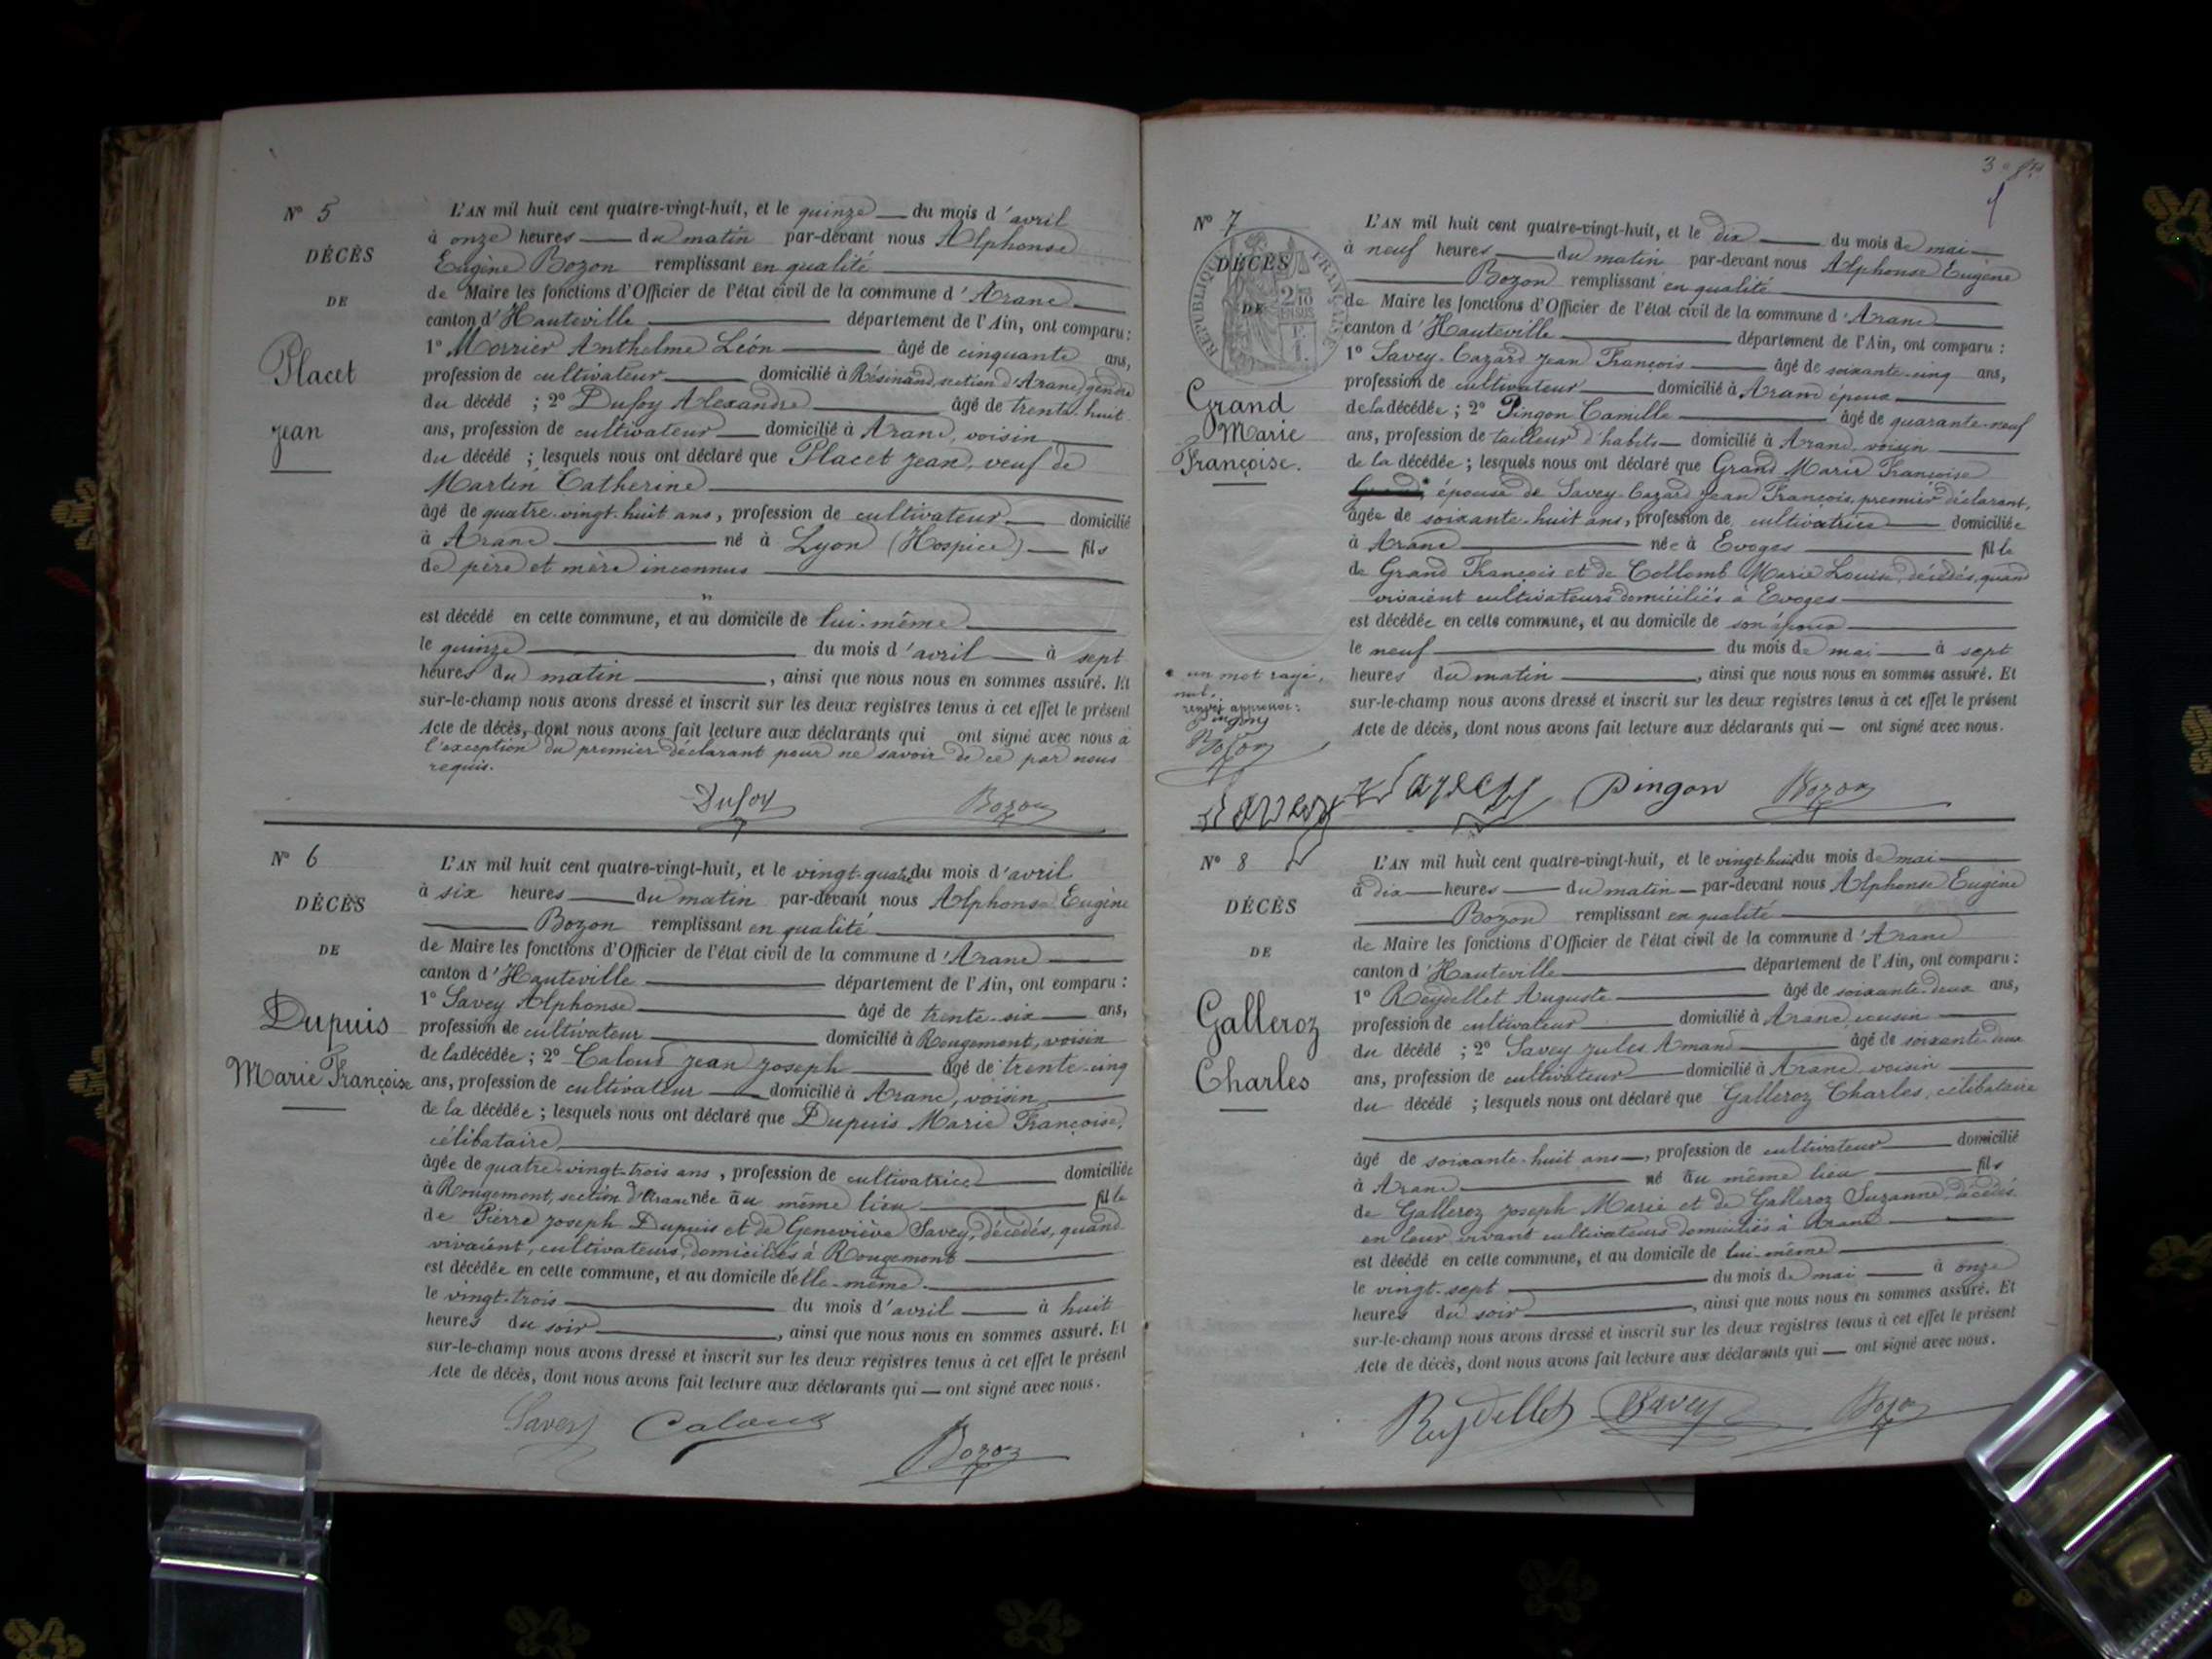 N° 5
DÉCÈS
DE
Placet
Jean
L'AN mil huit cent quatre-vingt-huit, et le quinze du mois d'avril
à onze heures du matin par-devant nous Alphonse
Eugène Bozon remplissant en qualité
de Maire les fonctions d'Officier de l'état civil de la commune d'Aranc
canton d'Hauteville département de l'Ain, ont comparu :
1° Morrier Anthelme Léon âgé de cinquante ans,
profession de cultivateur domicilié à Résinand, section d'Aranc, gendre
du décédé ; 2° Dufoy Alexandre âgé de trente-huit
ans, profession de cultivateur domicilié à Aranc, voisin
du décédé ; lesquels nous ont déclaré que Placet Jean, veuf de
Martin Catherine
âgé de quatre-vingt-huit ans, profession de cultivateur domicilié
à Aranc né à Lyon (Hospice) fils
de père et mère inconnus
est décédé en cette commune, et au domicile de lui-même
le quinze du mois d'avril à sept
heures du matin, ainsi que nous nous en sommes assuré. Et
sur-le-champ nous avons dressé et inscrit sur les deux registres tenus à cet effet le présent
Acte de décès, dont nous avons fait lecture aux déclarants qui ont signé avec nous à
l'exception du premier déclarant pour ne savoir de ce par nous
requis.
Dufoy Bozon
N° 6
DÉCÈS
DE
Dupuis
Marie Françoise
L'AN mil huit cent quatre-vingt-huit, et le vingt-quatre du mois d'avril
à six heures du matin par-devant nous Alphonse Eugène
Bozon remplissant en qualité
de Maire les fonctions d'Officier de l'état civil de la commune d'Aranc
canton d'Hauteville département de l'Ain, ont comparu :
1° Savey Alphonse âgé de trente-six ans,
profession de cultivateur domicilié à Rougemont, voisin
de la décédée ; 2° Caloud Jean Joseph âgé de trente-cinq
ans, profession de cultivateur domicilié à Aranc, voisin
de la décédée ; lesquels nous ont déclaré que Dupuis Marie Françoise,
célibataire
âgée de quatre-vingt-trois ans, profession de cultivatrice domiciliée
à Rougemont, section d'Aranc née au même lieu fille
de Pierre Joseph Dupuis et de Geneviève Savey, décédés, quand
vivaient, cultivateurs, domiciliés à Rougemont
est décédée en cette commune, et au domicile d'elle-même
le vingt-trois du mois d'avril à huit
heures du soir, ainsi que nous nous en sommes assuré. Et
sur-le-champ nous avons dressé et inscrit sur les deux registres tenus à cet effet le présent
Acte de décès, dont nous avons fait lecture aux déclarants qui — ont signé avec nous.
Savey Caloud
Bozon
N° 7
DÉCÈS
DE
RÉPUBLIQUE FRANÇAISE
Grand
Marie
Françoise.
L'AN mil huit cent quatre-vingt-huit, et le dix du mois de mai
à neuf heures du matin par-devant nous Alphonse Eugène
Bozon remplissant en qualité
de Maire les fonctions d'Officier de l'état civil de la commune d'Aranc
canton d'Hauteville département de l'Ain, ont comparu :
1° Savey-Cazard Jean François âgé de soixante-cinq ans,
profession de cultivateur domicilié à Aranc époux
de la décédée ; 2° Pingon Camille âgé de quarante-neuf
ans, profession de tailleur d'habits domicilié à Aranc, voisin
de la décédée ; lesquels nous ont déclaré que Grand Marie Françoise
épouse de Savey-Cazard Jean François, premier déclarant,
âgée de soixante-huit ans, profession de cultivatrice domiciliée
à Aranc née à Evoges fille
de Grand François et de Collomb Marie Louise, décédés, quand
vivaient cultivateurs domiciliés à Evoges
est décédée en cette commune, et au domicile de son époux
le neuf du mois de mai à sept
heures du matin, ainsi que nous nous en sommes assuré. Et
sur-le-champ nous avons dressé et inscrit sur les deux registres tenus à cet effet le présent
Acte de décès, dont nous avons fait lecture aux déclarants qui — ont signé avec nous.
* un mot rayé,
nul.
renvoi approuvé:
Pingon
Bozon
Pingon Bozon
N° 8
DÉCÈS
DE
Galleroz
Charles
L'AN mil huit cent quatre-vingt-huit, et le vingt-huit du mois de mai
à dix heures du matin par-devant nous Alphonse Eugène
Bozon remplissant en qualité
de Maire les fonctions d'Officier de l'état civil de la commune d'Aranc
canton d'Hauteville département de l'Ain, ont comparu :
1° Reydellet Auguste âgé de soixante-deux ans,
profession de cultivateur domicilié à Aranc, cousin
du décédé ; 2° Savey Jules Amand âgé de soixante-deux
ans, profession de cultivateur domicilié à Aranc, voisin
du décédé ; lesquels nous ont déclaré que Galleroz Charles, célibataire
âgé de soixante-huit ans, profession de cultivateur domicilié
à Aranc né au même lieu fils
de Galleroz Joseph Marie et de Galleroz Suzanne, décédés
en leur vivant cultivateurs domiciliés à Aranc
est décédé en cette commune, et au domicile de lui-même
le vingt-sept du mois de mai à onze
heures du soir, ainsi que nous nous en sommes assuré. Et
sur-le-champ nous avons dressé et inscrit sur les deux registres tenus à cet effet le présent
Acte de décès, dont nous avons fait lecture aux déclarants qui — ont signé avec nous.
Reydellet Savey Bozon